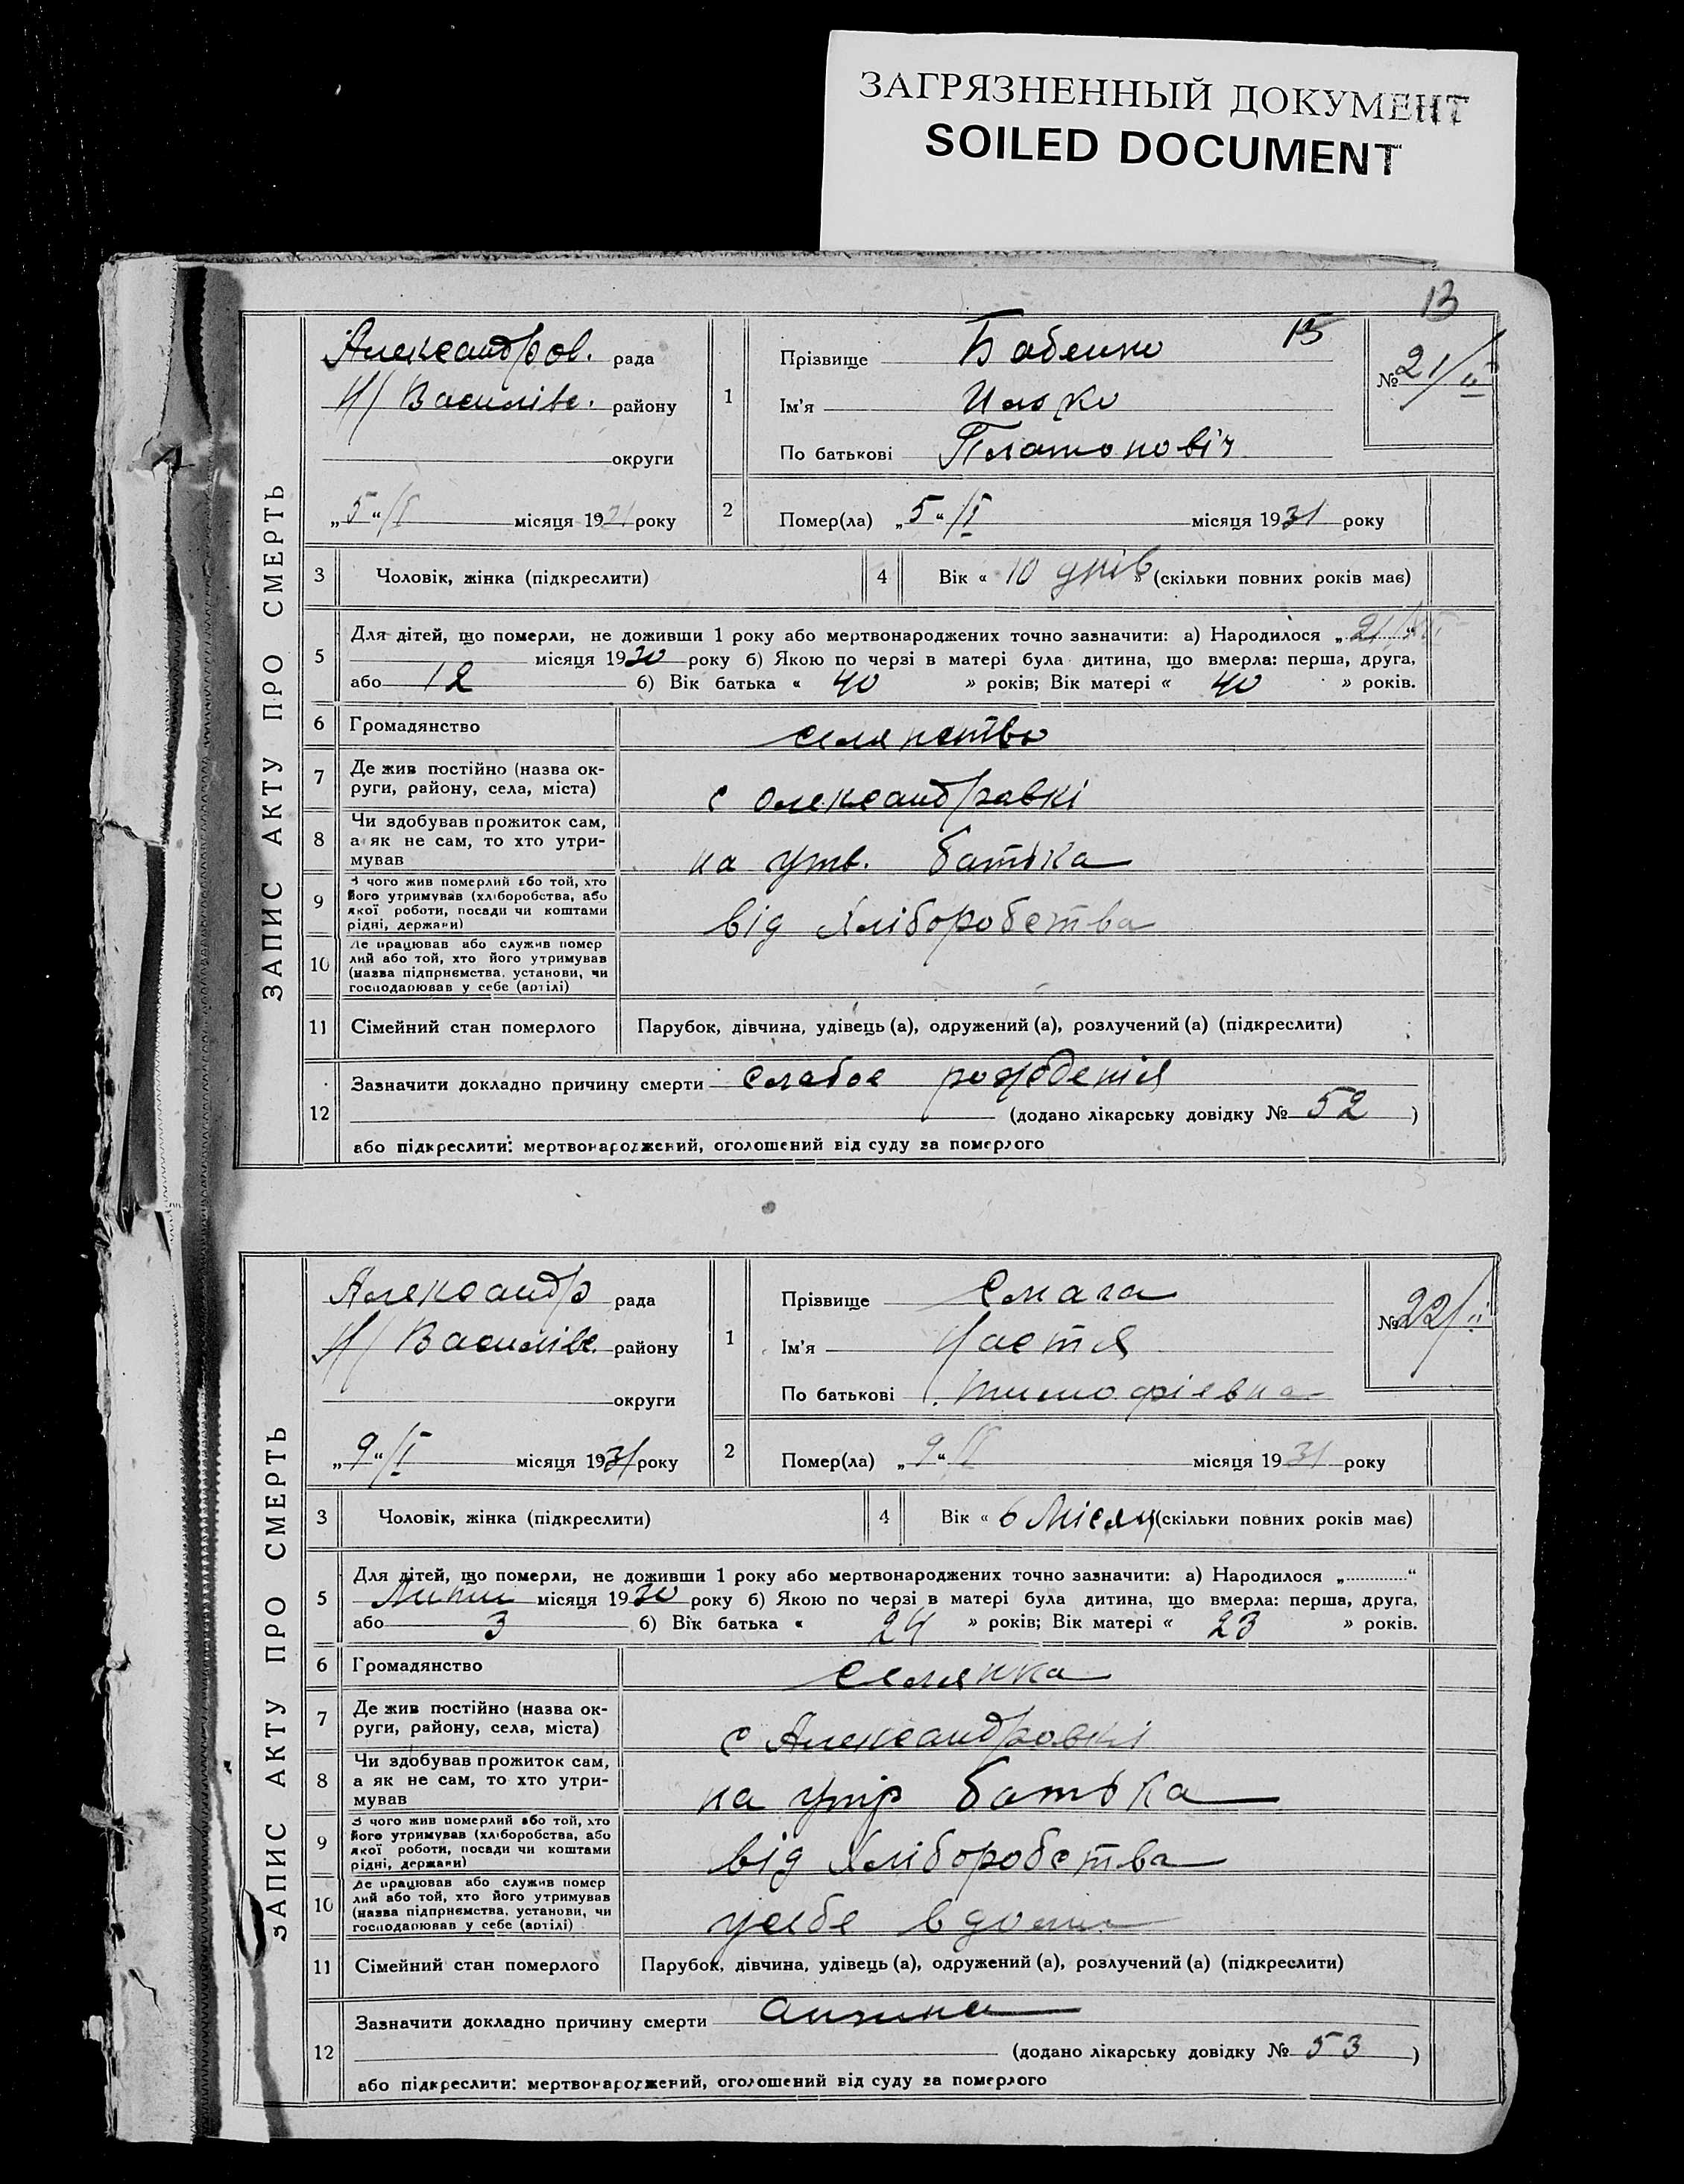 ЗАГРЯЗНЕННЫЙ ДОКУМЕНТ
SOILED DOCUMENT
13
ЗАПИС АКТУ ПРО СМЕРТЬ
Александров. рада
Н/Василів. району
округи
„5“/I місяця 1931 року
1
Прізвище Бабенко 15
Ім'я
По батькові Платоновіч
№ 21/II
2
Помер(ла) „5“/I місяця 1931 року
3 Чоловік, жінка (підкреслити)
4 Вік « 10 днів » (скільки повних років має)
5 Для дітей, що померли, не доживши 1 року або мертвонароджених точно зазначити: а) Народилося „
місяця 1930 року б) Якою по черзі в матері була дитина, що вмерла: перша, друга,
або 12 б) Вік батька « 40 » років; Вік матері « 40 » років.
6 Громадянство селянство
7 Де жив постійно (назва округи, району, села, міста) с Олександравкі
8 Чи здобував прожиток сам, а як не сам, то хто утримував на утв. батька
9 З чого жив померлий або той, хто його утримував (хліборобства, або якої роботи, посади чи коштами рідні, держави) від хліборобства
10 Де працював або служив помер лий або той, хто його утримував (назва підприємства, установи, чи господарював у себе (артілі)
11 Сімейний стан померлого Парубок, дівчина, удівець (а), одружений (а), розлучений (а) (підкреслити)
12 Зазначити докладно причину смерти слабое рождения
(додано лікарську довідку № 52 )
або підкреслити: мертвонароджений, оголошений від суду за померлого
ЗАПИС АКТУ ПРО СМЕРТЬ
Александр рада
Н/Василів. району
округи
„9“/I місяця 1931 року
1
Прізвище Смага
Ім'я Настя
По батькові Тимофіевна
№ 22/II
2
Помер(ла) „9“/I місяця 1931 року
3 Чоловік, жінка (підкреслити)
4 Вік « 6 Місяц (скільки повних років має)
5 Для дітей, що померли, не доживши 1 року або мертвонароджених точно зазначити: а) Народилося „ “
місяця 1930 року б) Якою по черзі в матері була дитина, що вмерла: перша, друга,
або 3 б) Вік батька « 24 » років; Вік матері « 23 » років.
6 Громадянство селянка
7 Де жив постійно (назва округи, району, села, міста) с Александровкі
8 Чи здобував прожиток сам, а як не сам, то хто утримував на утр батька
9 З чого жив померлий або той, хто його утримував (хліборобства, або якої роботи, посади чи коштами рідні, держави) від хліборобства
10 Де працював або служив помер лий або той, хто його утримував (назва підприємства, установи, чи господарював у себе (артілі) усебе вдома
11 Сімейний стан померлого Парубок, дівчина, удівець (а), одружений (а), розлучений (а) (підкреслити)
12 Зазначити докладно причину смерти ангина
(додано лікарську довідку № 53 )
або підкреслити: мертвонароджений, оголошений від суду за померлого